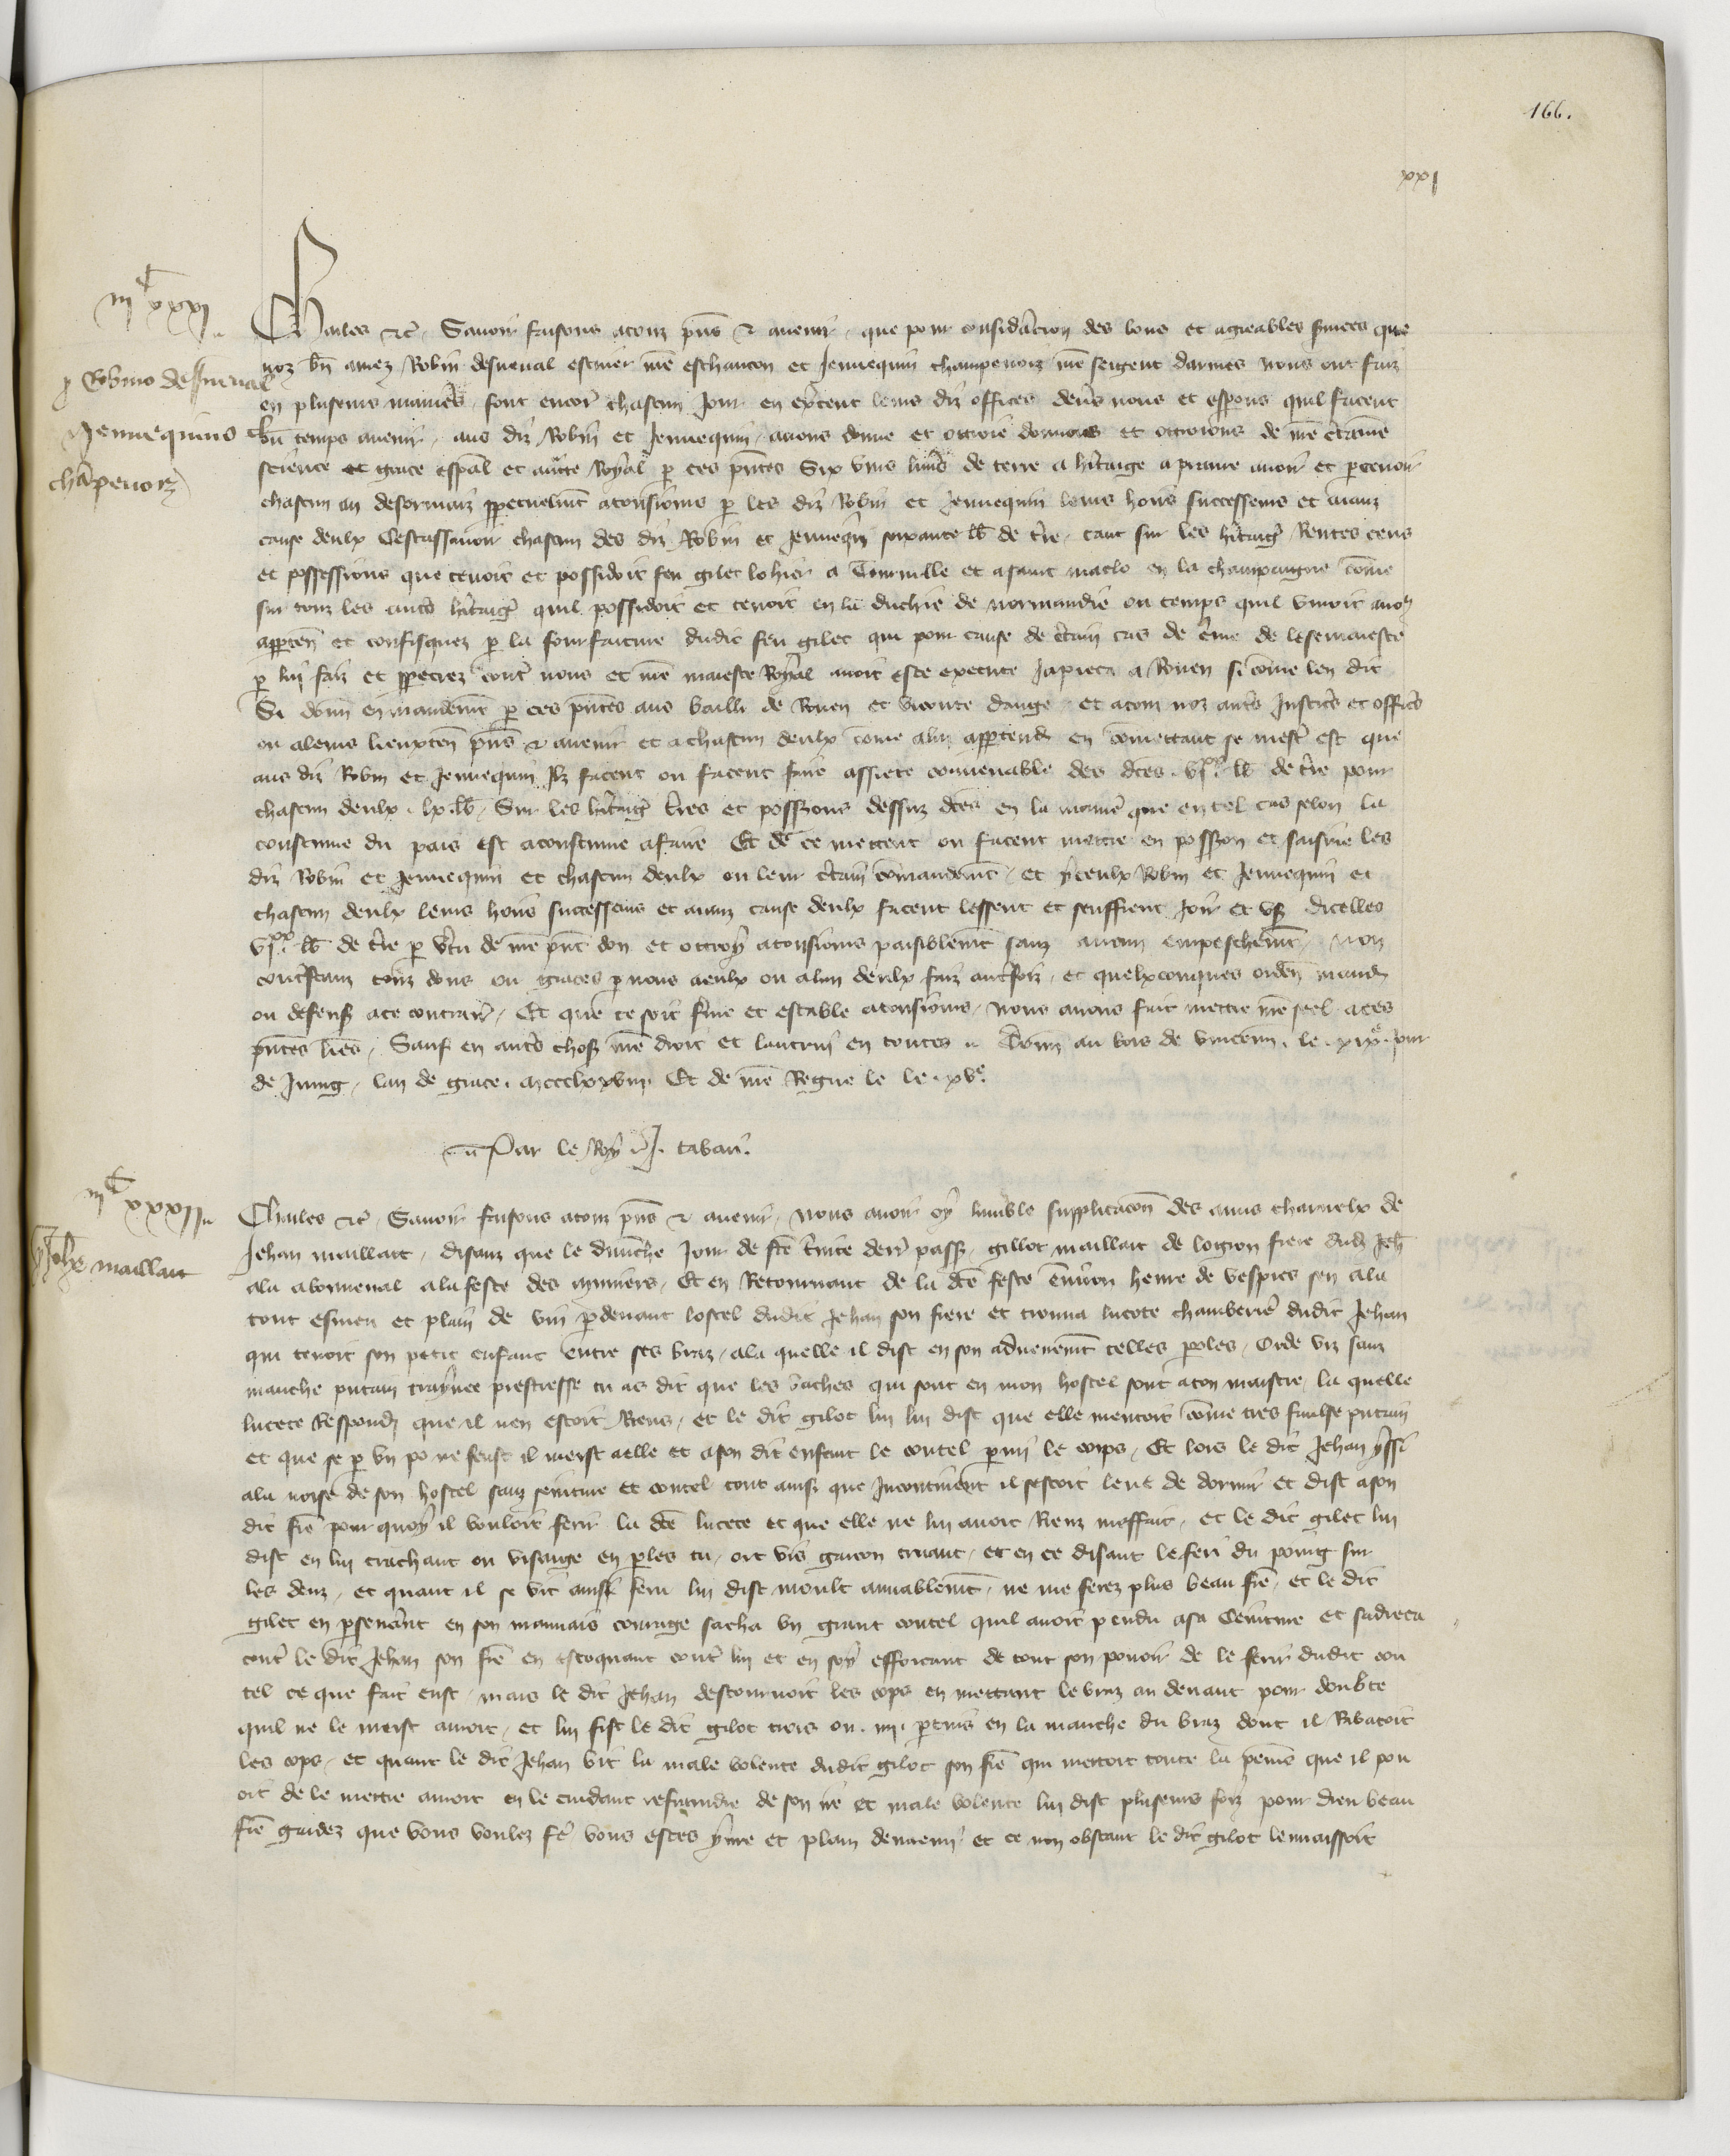 166.
xxi
iijc xxxi
p Robino desneval
Jennequino
chāpenois
Charles etc. Savoir faisons a touz p̄ns et avenir que pour considāciōn des bons et agreables s̄vices que
noz bn̄ amez Robin desneval escuier n̄re eschancon et Jennequin champenois n̄re sergent darmes nous ont faiz
en plusieurs manieres, font encores chascun jour en ex̄cent leurs diz offices devers nous et esperons quil facent
ou temps avenir, aus diz Robin et Jennequin avons donne et ottroie donnons et ottroions de n̄re c̄taine
science et grace esp̄al et auc̄te Royal p̄ ces p̄ntes Six vins livres de terre a h̄itaige a prenre avoir et parcevoir
chascun an desormaiz p̄petuelm̄t a tousjours p̄ les diz Robin et Jennequin leurs hoirs successeurs et aianz
cause deulx Cestassavoir chascun des diz Robin et Jennequin soixante lb̄ de t̄re, tant sur les h̄itaiḡ Rentes cens
et possessions que tenoit et possidoit feu gilet lohier a Tourville et a saint maclo en la champaigne cōme
sur touz les aut̄s h̄itaiḡ quil possidoit et tenoit en la duchie de normandie ou temps quil vivoit a nous
app̄ten̄ et confisquez p̄ la fourfaiture dudit feu gilet qui pour cause de c̄tain cas de c̄me de lesemaieste
p̄ lui faiz et p̄petrez cont̄ nous et n̄re maieste Royal avoit este execute Japieca a Rouen si cōme len dit
Si donn̄ en mandem̄t p̄ ces p̄ntes aus bailli de Rouen et viconte dauge et a touz noz aut̄s Justic̄s et offic̄s
ou a leurs lieuxten̄ p̄ns et avenir et a chascun deulx cōme a lui app̄tend̄ en cōmettant se mest̄ est que
aus diz Robin et Jennequin ilz facent ou facent faire assiete convenable des dc̄es vjxx lb̄ de t̄re pour
chascun deulx lx lb̄ Sur les h̄itaiḡ t̄res et possions dessuz dc̄es en la manie que en tel cas selon la
coustume du pais est acoustume a faire Et de ce mettent ou facent mettre en possion et saisine les
diz Robin et Jennequin et chascun deulx ou leur c̄tain cōmandem̄t, et yceulx Robin et Jennequin et
chascun deulx leurs hoirs successeurs et aianz cause deulx facent lessent et seuffrent Joir et us̄ dicelles
vjxx lb̄ de t̄re p̄ v̄tu de n̄re p̄nt don et ottroy a tousjours paisiblem̄t sanz aucun empeschem̄t, non
contrestanz touz dons ou graces p̄ nous a eulx ou a lun deulx faiz autrefoiz, et quelxconques orden̄ mand̄
ou defens̄ a ce contrair̄, Et que ce soit f̄me et estable a tousjours, nous avons fait mettre n̄re seel a ces
p̄ntes l̄res, Sauf en aut̄s chos̄ n̄re droit et lautrui en toutes. Donn̄ au bois de vincenn̄ le xixe jour
de Juing, lan de grace mccclxxviij Et de n̄re Regne le le xve.
Par le Roy J. tabari.
iijc xxxij
p Johē maillart
Charles etc. Savoir faisons a touz p̄ns et avenir, nous avoir oy lumble supplicacōn des amis charnelx de
Jehan maillart, disanz que le dimēche jour de fc̄e t̄nite derr̄ pass̄, gillot maillart de logron frere dud̄ Jeh̄
ala a bonneval a la feste des mynniers, Et en Retournant de la dc̄e feste environ heure de vespres sen ala
tout esmeu et plain de vin p̄devant lostel dudit Jehan son frere et trouva lucete chamberie dudit Jehan
qui tenoit son petit enfant entre ses braz, a la quelle il dist en son advenem̄t telles p̄oles, Orde viz sanz
manche putain traynee prestresse tu as dit que les vaches qui sont en mon hostel sont a ton maistre, la quelle
lucete Respondi que il nen estoit Riens, et le dit gilot lui lui dist que elle mentoit cōme tres faulse putain
et que se p̄ un po ne feust il meist a elle et a son dit enfant le coutel p̄mi le corps, Et lors le dit Jehan yssi
a la noise de son hostel sanz seinture et coutel tout ainsi que Incontinent il sestoit leve de dormir et dist a son
dit fr̄e pour quoy il vouloit ferir la dc̄e lucete et que elle ne lui avoit Rienz meffait, et le dit gilet lui
dist en lui crachant ou visaige en p̄les tu, ort viz garcon truant, et en ce disant le feri du poing sur
les denz, et quant il se vit ainsi feru lui dist moult amiablem̄t, ne me ferez plus beau fr̄e, et le dit
gilet en p̄sev̄ant en son mauvais courage sacha un grant coutel quil avoit pendu a sa ceinture et sadreca
cont̄ le dit Jehan son fr̄e en estoquant cont̄ lui et en soy efforcant de tout son povoir de le ferir dudit cou
tel ce que fait eust, mais le dit Jehan destournoit les cops en mettant le braz au devant pour doubte
quil ne le meist a mort, et lui fist le dit gilot trois ou iiij p̄tuis en la manche du braz dont il Rebatoit
les cops, et quant le dit Jehan vit la male volente dudit gilot son fr̄e qui mettoit toute la peine que il pou
oit de le mettre a mort en le cuidant refraindre de son ire et male volente lui dist plusieurs foiz pour dieu beau
fr̄e gardez que vous voulez fe vous estes yvre et plain dennemi et ce non obstant le dit gilot